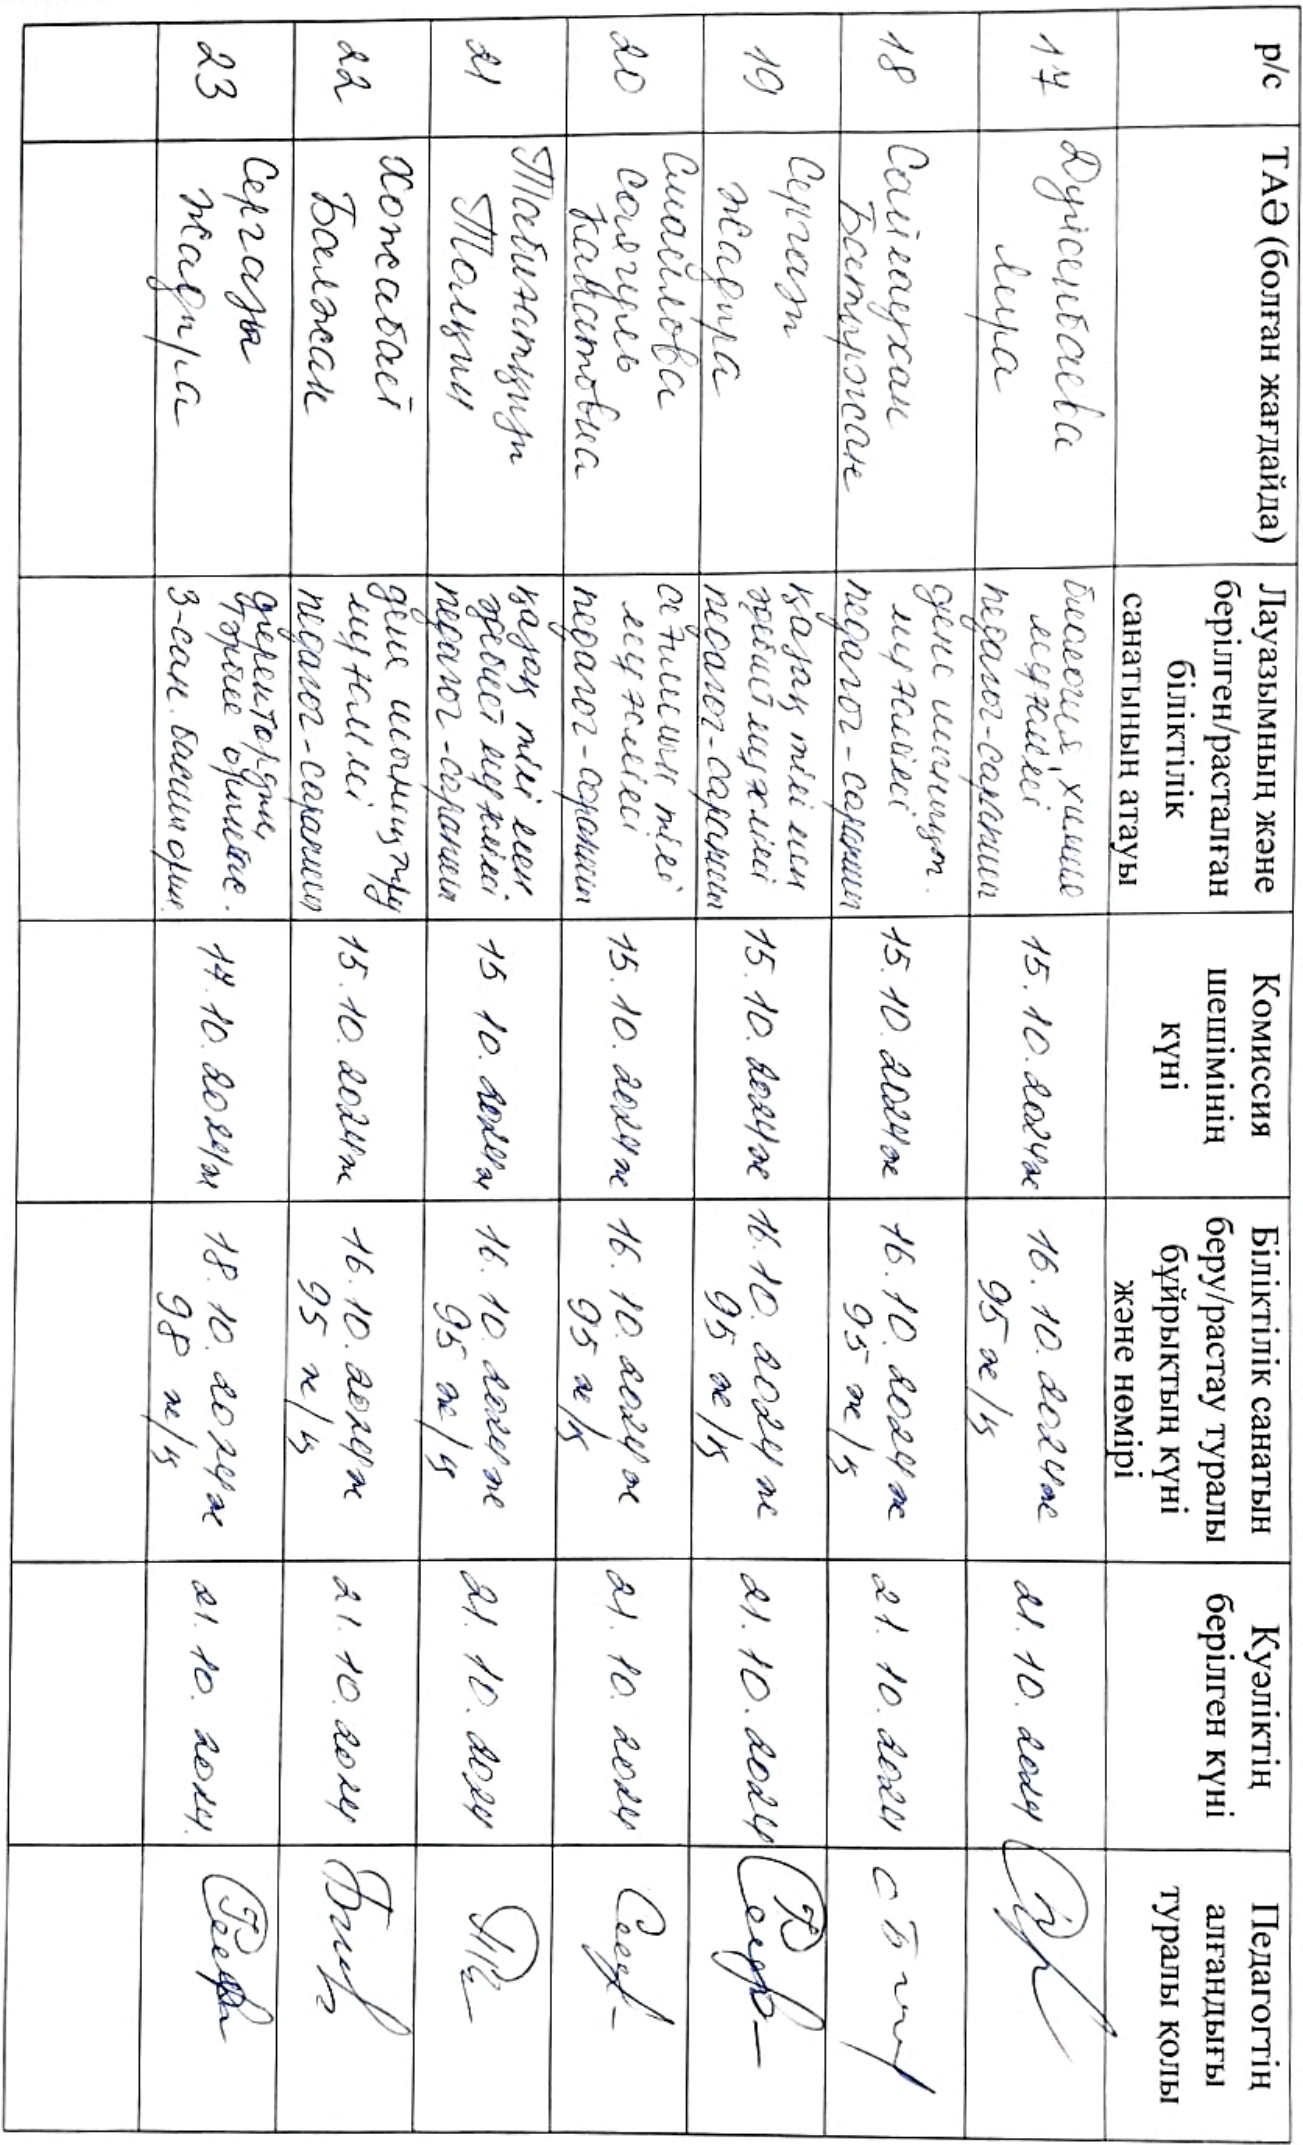 р/с
ТАӘ (болған жағдайда)
Лауазымның және
берілген/расталған
біліктілік
санатының атауы
Комиссия
шешімінің
күні
Біліктілік санатын
беру/растау туралы
бұйрықтың күні
және нөмірі
Куәліктің
берілген күні
Педагогтің
алғандығы
туралы қолы
17
Дүйсенбаева
Мира
биология, химия
мұғалімі
педагог-сарапшы
15.10.2024ж
16.10.2024ж
95 ж/қ
21.10.2024
18
Сайлаухан
Бектыржан
дене шынықт.
мұғалімі
педагог-сарапшы
15.10.2024ж
16.10.2024ж
95 ж/қ
21.10.2024
19
Серғазы
Жадыра
қазақ тілі мен
әдебиет мұғалімі
педагог-сарапшы
15.10.2024ж
16.10.2024ж
95 ж/қ
21.10.2024
20
Смаилова
Саягуль
Канатовна
ағылшын тілі
мұғалімі
педагог-сарапшы
15.10.2024ж
16.10.2024ж
95 ж/қ
21.10.2024
21
Толқын
қазақ тілі мен
әдебиет мұғалімі
педагог-сарапшы
15.10.2024ж
16.10.2024ж
95 ж/қ
21.10.2024
22
Хожабай
Балжан
дене шынықтыру
мұғалімі
педагог-сарапшы
15.10.2024ж
16.10.2024ж
95 ж/қ
21.10.2024
23
Серғазы
Жадыра
директордың
3-сан. басшы орын.
17.10.2024ж
18.10.2024ж
98 ж/қ
21.10.2024.